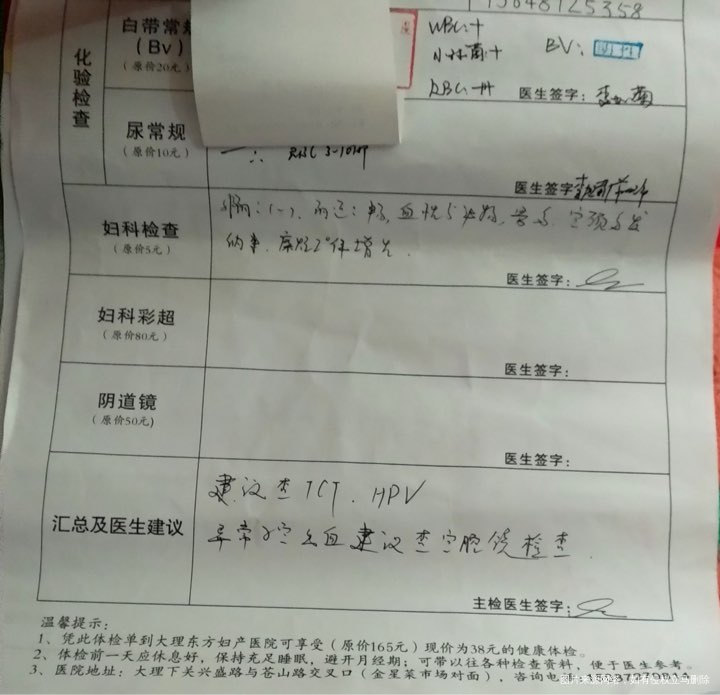 13648125358
白带常规
(Bv)
(原价20元)
WBC:+
小杆菌:+
BV:阴性
RBC:++
医生签字:
化验检查
尿常规
(原价10元)
RBC 3-10/HP
医生签字
妇科检查
(原价5元)
外阴:(-)、阴道:畅,血性分泌物,
医生签字:
妇科彩超
(原价80元)
医生签字:
阴道镜
(原价50元)
医生签字:
汇总及医生建议
建议查TCT、HPV
异常子宫出血建议查宫腔镜检查.
主检医生签字:
温馨提示:
1、凭此体检单到大理东方妇产医院可享受(原价165元)现价为38元的健康体检。
2、体检前一天应休息好,保持充足睡眠,避开月经期;可带以往各种检查资料,便于医生参考。
3、医院地址:大理下关兴盛路与苍山路交叉口(金星菜市场对面),咨询电
图片来源网络,如有侵权立马删除